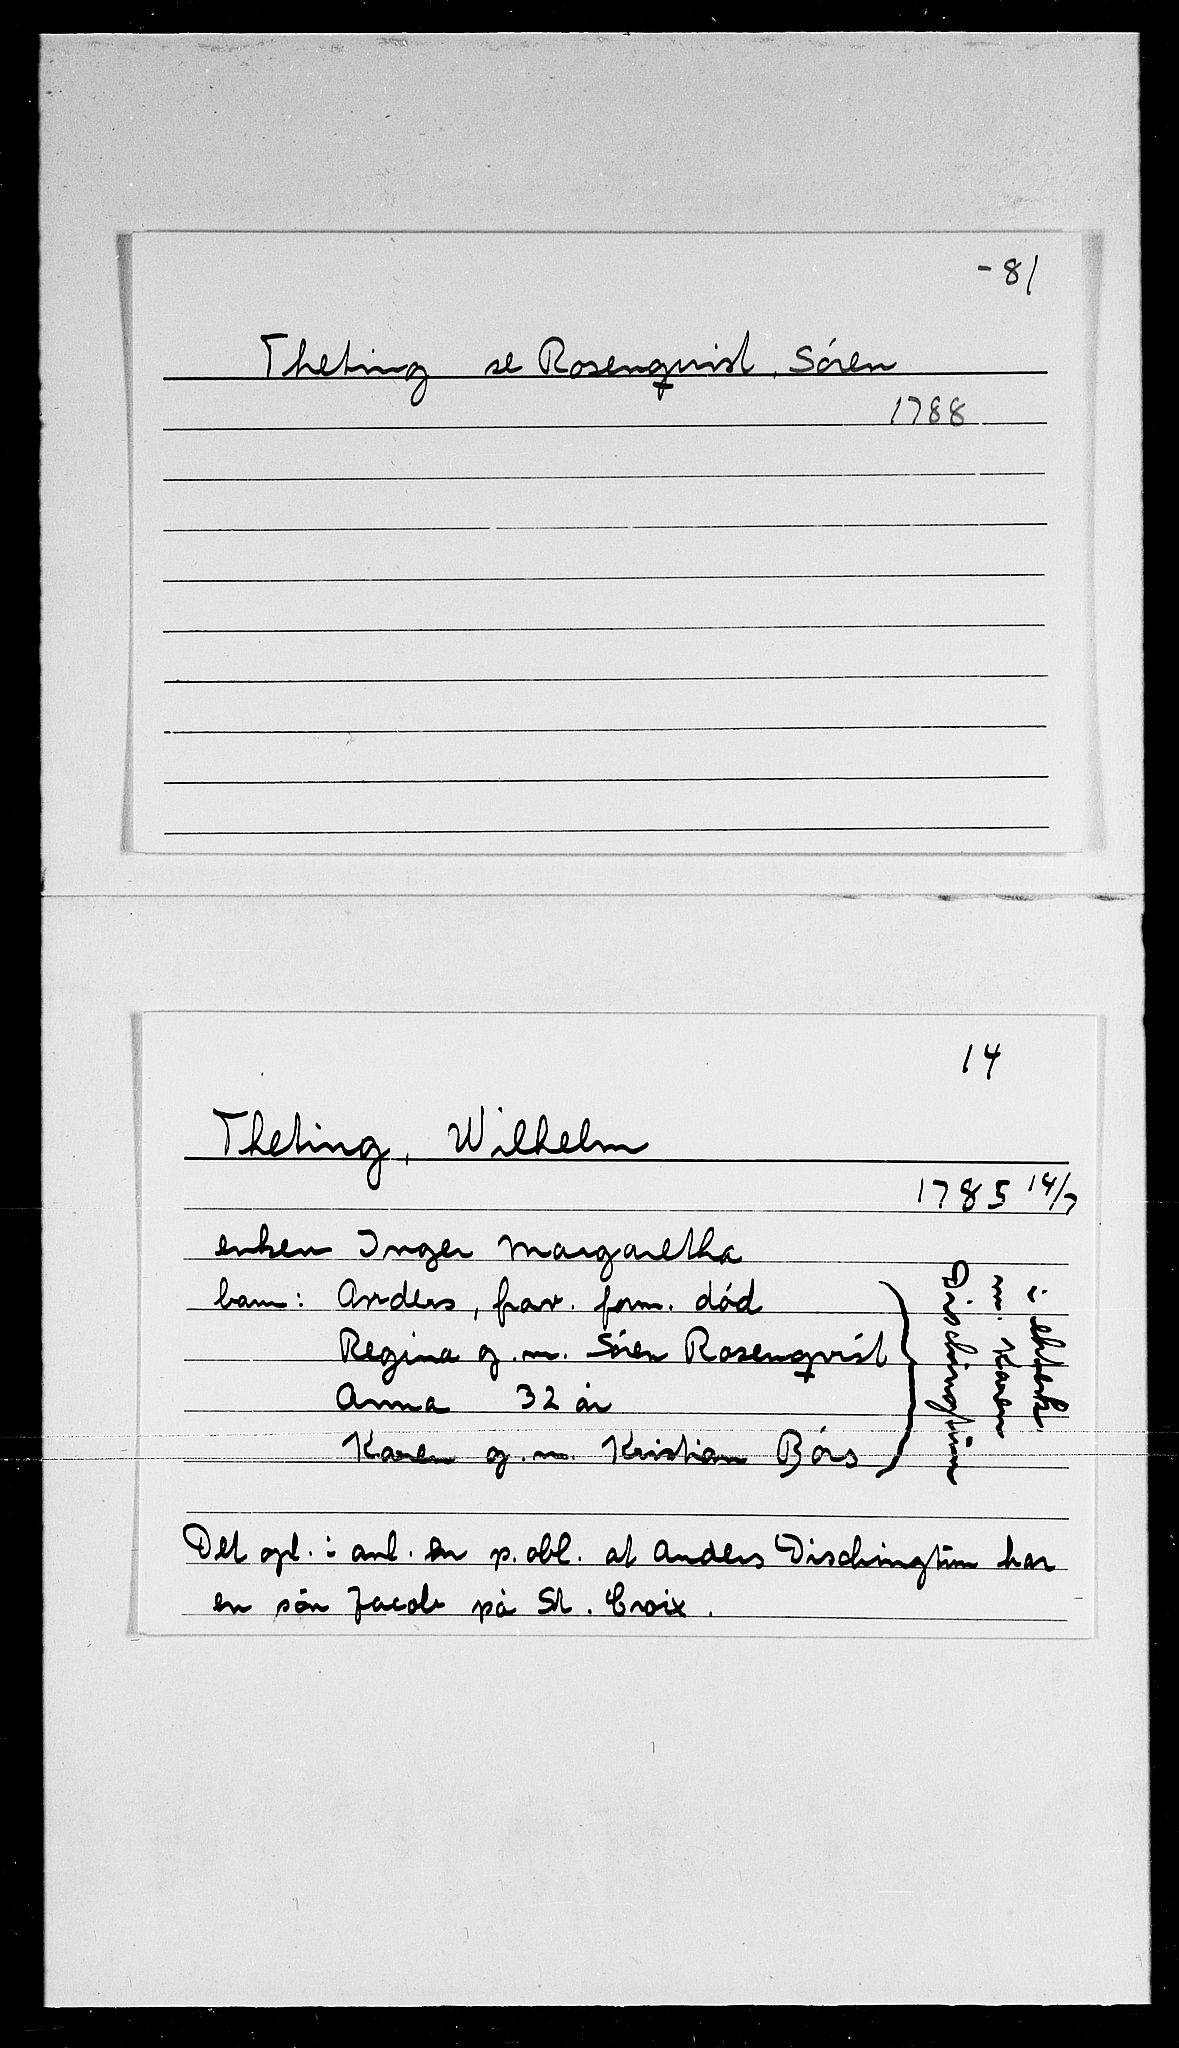 -81
Theting se Rosenqvist, Sören
1788
14
Theting, Wilhelm
1785 14/7
enken Inger Margaretha
barn: Anders, frav. form. död
Regina g. m. Sören Rosenqvist
Anna 32 år
Karen g. m. Kristian Börs
i ektesk.
m. Karen
Dischingtun
Det opl. i anl. en p. obl. at Anders Dischingtun har
en sön Jacob på St. Croix.